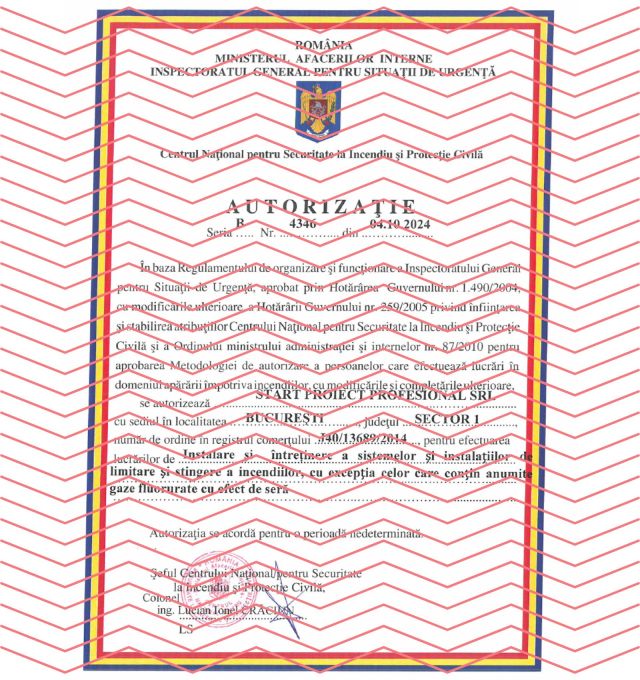 ROMÂNIA
MINISTERUL AFACERILOR INTERNE
INSPECTORATUL GENERAL PENTRU SITUAȚII DE URGENȚĂ
Centrul Național pentru Securitate la Incendiu și Protecție Civilă
AUTORIZAȚIE
Seria B Nr. 4346 din 04.10.2024
În baza Regulamentului de organizare și funcționare a Inspectoratului General
pentru Situații de Urgență, aprobat prin Hotărârea Guvernului nr. 1.490/2004,
cu modificările ulterioare, a Hotărârii Guvernului nr. 259/2005 privind înființarea
și stabilirea atribuțiilor Centrului Național pentru Securitate la Incendiu și Protecție
Civilă și a Ordinului ministrului administrației și internelor nr. 87/2010 pentru
aprobarea Metodologiei de autorizare a persoanelor care efectuează lucrări în
domeniul apărării împotriva incendiilor, cu modificările și completările ulterioare,
se autorizează START PROIECT PROFESIONAL SRL
cu sediul în localitatea BUCUREȘTI, județul SECTOR 1,
număr de ordine în registrul comerțului J40/13689/2014, pentru efectuarea
lucrărilor de Instalare și întreținere a sistemelor și instalațiilor de
limitare și stingere a incendiilor, cu excepția celor care conțin anumite
gaze fluorurate cu efect de seră
Autorizația se acordă pentru o perioadă nedeterminată.
Șeful Centrului Național pentru Securitate
la Incendiu și Protecție Civilă,
Colonel
ing. Lucian Ionel CRĂCIUN
LS